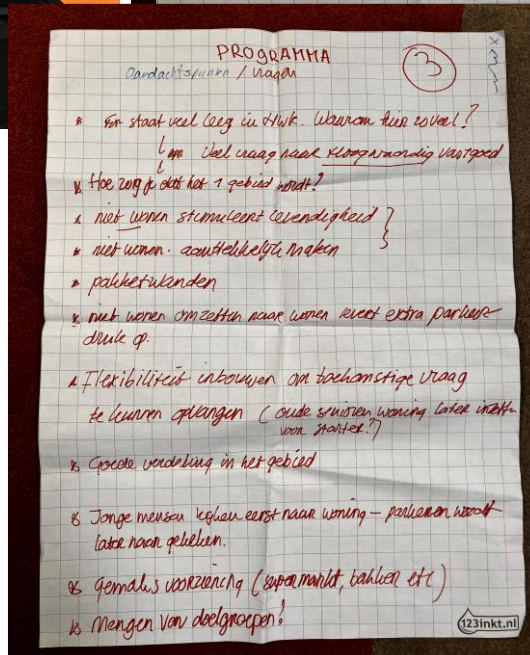 PROGRAMMA
3
Aandachtspunten / vragen
* Er staat veel leeg in HWK. Waarom hier zoveel?
Veel vraag naar hoogwaardig vastgoed
* Hoe zorg je dat het 1 gebied wordt?
* niet wonen stimuleert levendigheid
* niet wonen. aantrekkelijk maken
* pakketwanden
* niet wonen omzetten naar wonen levert extra parkeer
druk op.
* Flexibiliteit inbouwen om toekomstige vraag
te kunnen opvangen (oude senioren woning later inzetten
voor starter?)
* Goede verdeling in het gebied
* Jonge mensen kijken eerst naar woning – parkeren wordt
later naar gekeken.
* Gemaks voorziening (supermarkt, bakker etc)
* Mengen van doelgroepen!
123inkt.nl